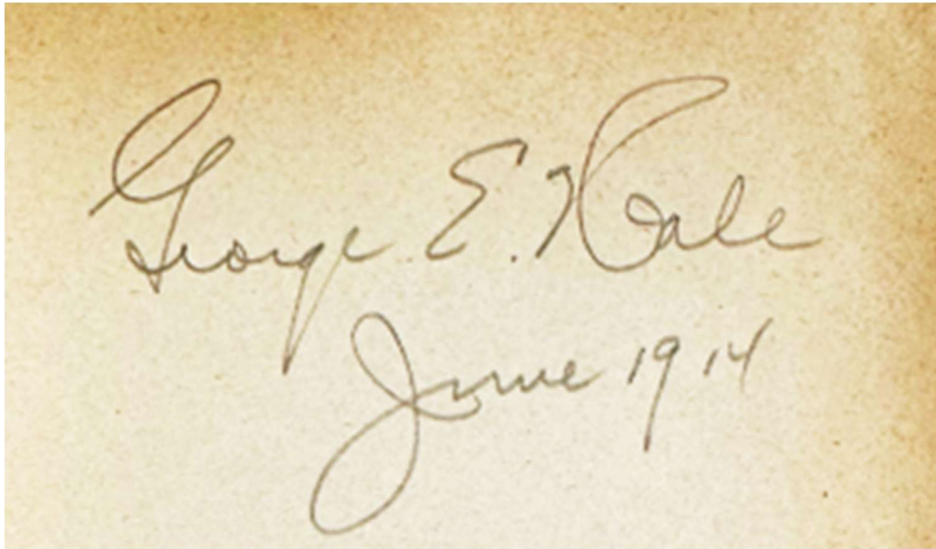 George E. Hale
June 1914